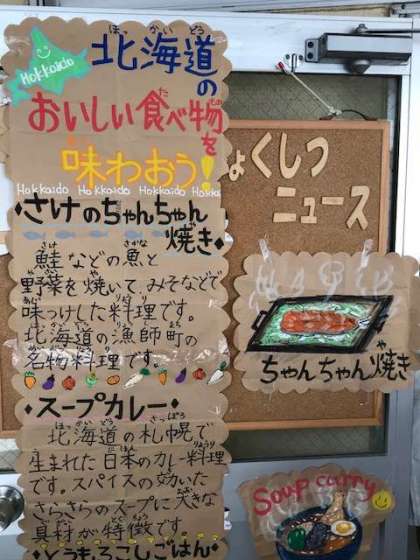 Hokkaido
北海道
の
おいしい食べ物を
味わおう!
Hokkaido Hokkaido Hokkaido Hokkaido
◆さけのちゃんちゃん
焼き◆
鮭などの魚と
野菜を焼いて、みそなどで
味つけした料理です。
北海道の漁師町の
名物料理です。
◆スープカレー◆
北海道の札幌で
生まれた日本のカレー料理
です。スパイスの効いた
さらさらのスープに大きな
具材が特徴です。
◆とうもろこしごはん◆
ょくしつ
ニュース
ちゃんちゃん焼き
Soup curry